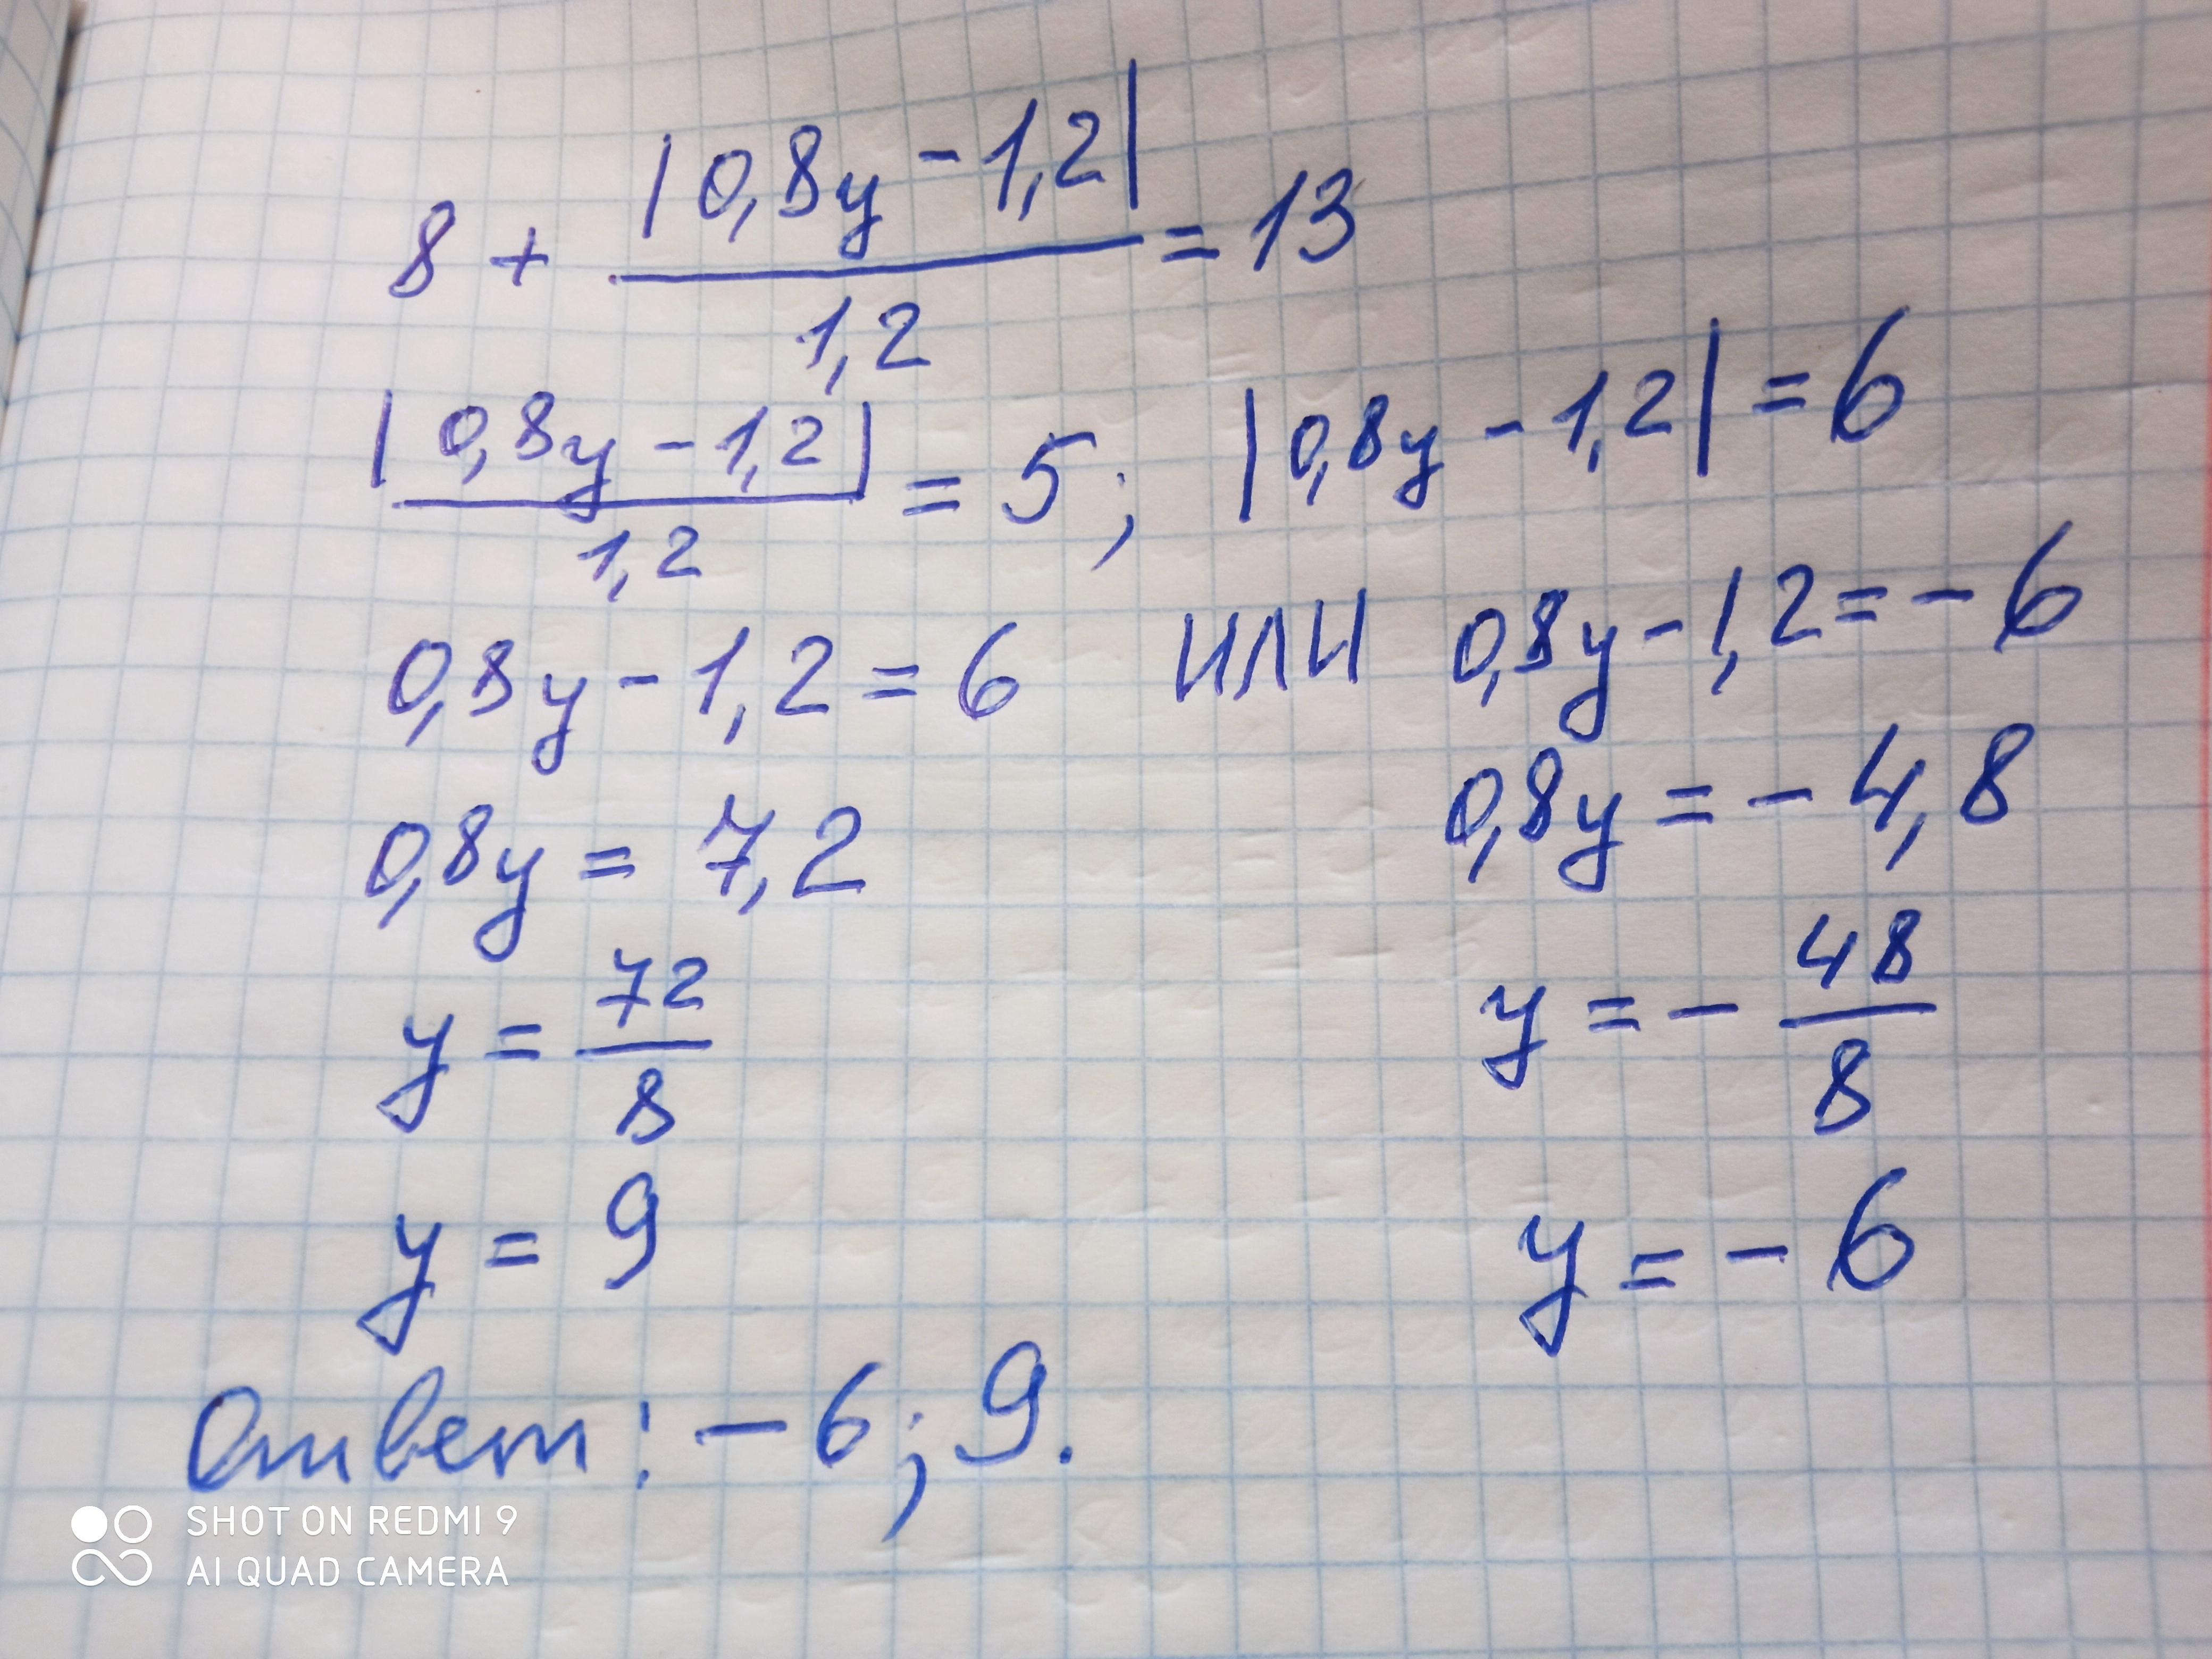 8 + |0,8y - 1,2| / 1,2 = 13
|0,8y - 1,2| / 1,2 = 5; |0,8y - 1,2| = 6
0,8y - 1,2 = 6 или 0,8y - 1,2 = - 6
0,8y = 7,2 0,8y = - 4,8
y = 72/8 y = - 48/8
y = 9 y = - 6
Ответ: - 6; 9.
SHOT ON REDMI 9
AI QUAD CAMERA